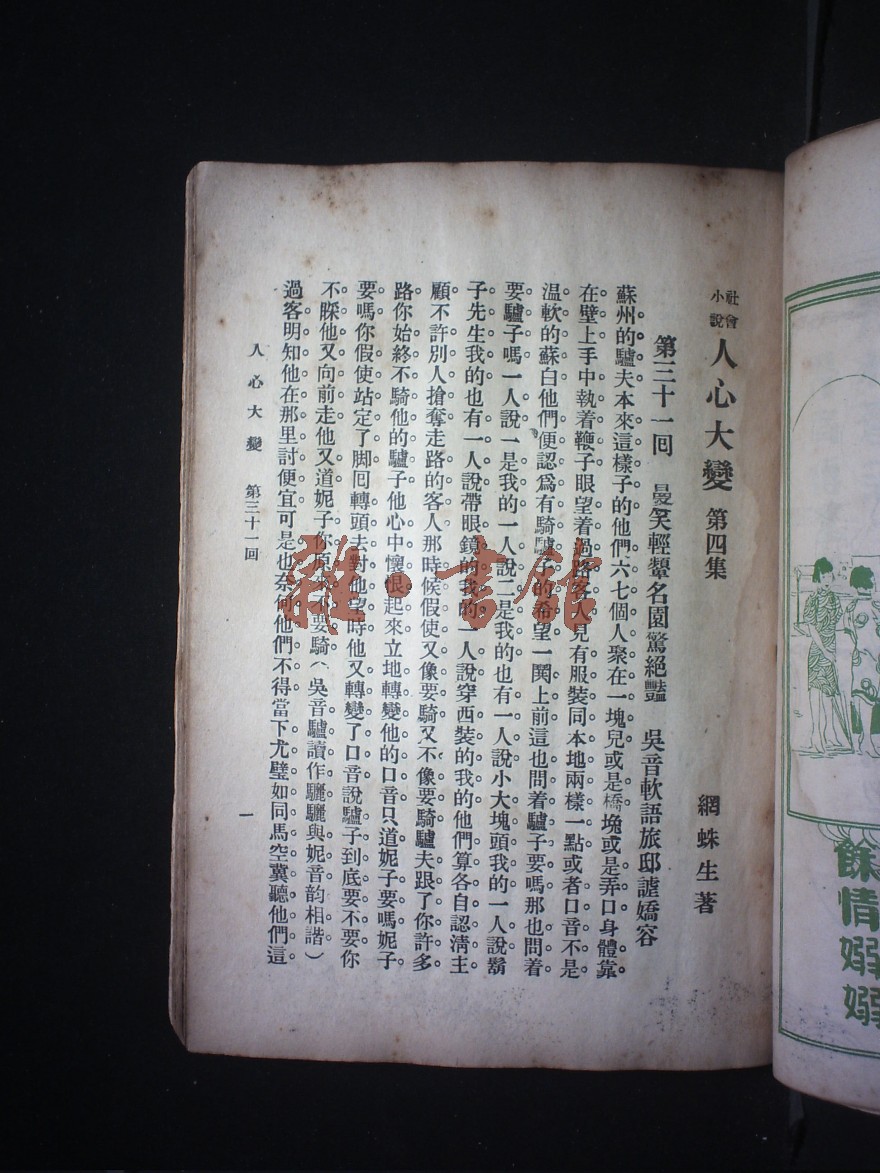 社會
小說
人心大變 第四集
網蛛生著
第三十一回 曼笑輕顰名園驚絕豔 吳音軟語旅邸謔嬌容
蘇州的驢夫本來這樣子的他們六七個人聚在一塊兒或是橋堍或是弄口身體靠
在壁上手中執着鞭子眼望着過路客人見有服裝同本地兩樣一點或者口音不是
温軟的蘇白他們便認爲有騎驢子的希望一鬨上前這也問着驢子要嗎那也問着
要驢子嗎一人說一是我的一人說二是我的也有一人說小大塊頭我的一人說鬍
子先生我的也有一人說帶眼鏡的我的一人說穿西裝的我的他們算各自認淸主
顧不許別人搶奪走路的客人那時候假使又像要騎又不像要騎驢夫跟了你許多
路你始終不騎他的驢子他心中懷恨起來立地轉變他的口音只道妮子要嗎妮子
要嗎你假使站定了脚回轉頭去對他望時他又轉變了口音說驢子到底要不要你
不睬他又向前走他又道妮子你原來不要騎（吳音驢讀作驪驪與妮音韵相諧）
過客明知他在那里討便宜可是也奈何他們不得當下尤璧如同馬空冀聽他們這
人心大變 第三十一回
一
雜·書館
餘情嫋嫋